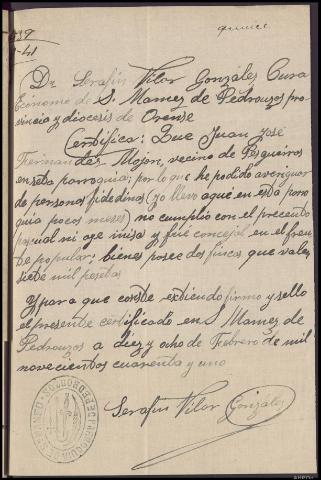 quince
939
-41
Dn Serafín Vilar González Cura
Ecónomo de S. Mamez de Pedrouzos pro
vincia y diócesis de Orense
Certifica: Que Juan José
Fernandez Mojon, vecino de
en esta parroquia; por lo que he podido averiguar
de personas fidedinas (yo llevo aquí en esta parro
quia pocos meses) no cumplió con el precepto
pascual ni oye misa y fué concejal en el fren
te popular; bienes posee dos fincas que valen
siete mil pesetas
Y para que conste extiendo firmo y sello
el presente certificado en S. Mamez de
Pedrouzos a diez y ocho de Febrero de mil
novecientos cuarenta y uno
Serafín Vilar González